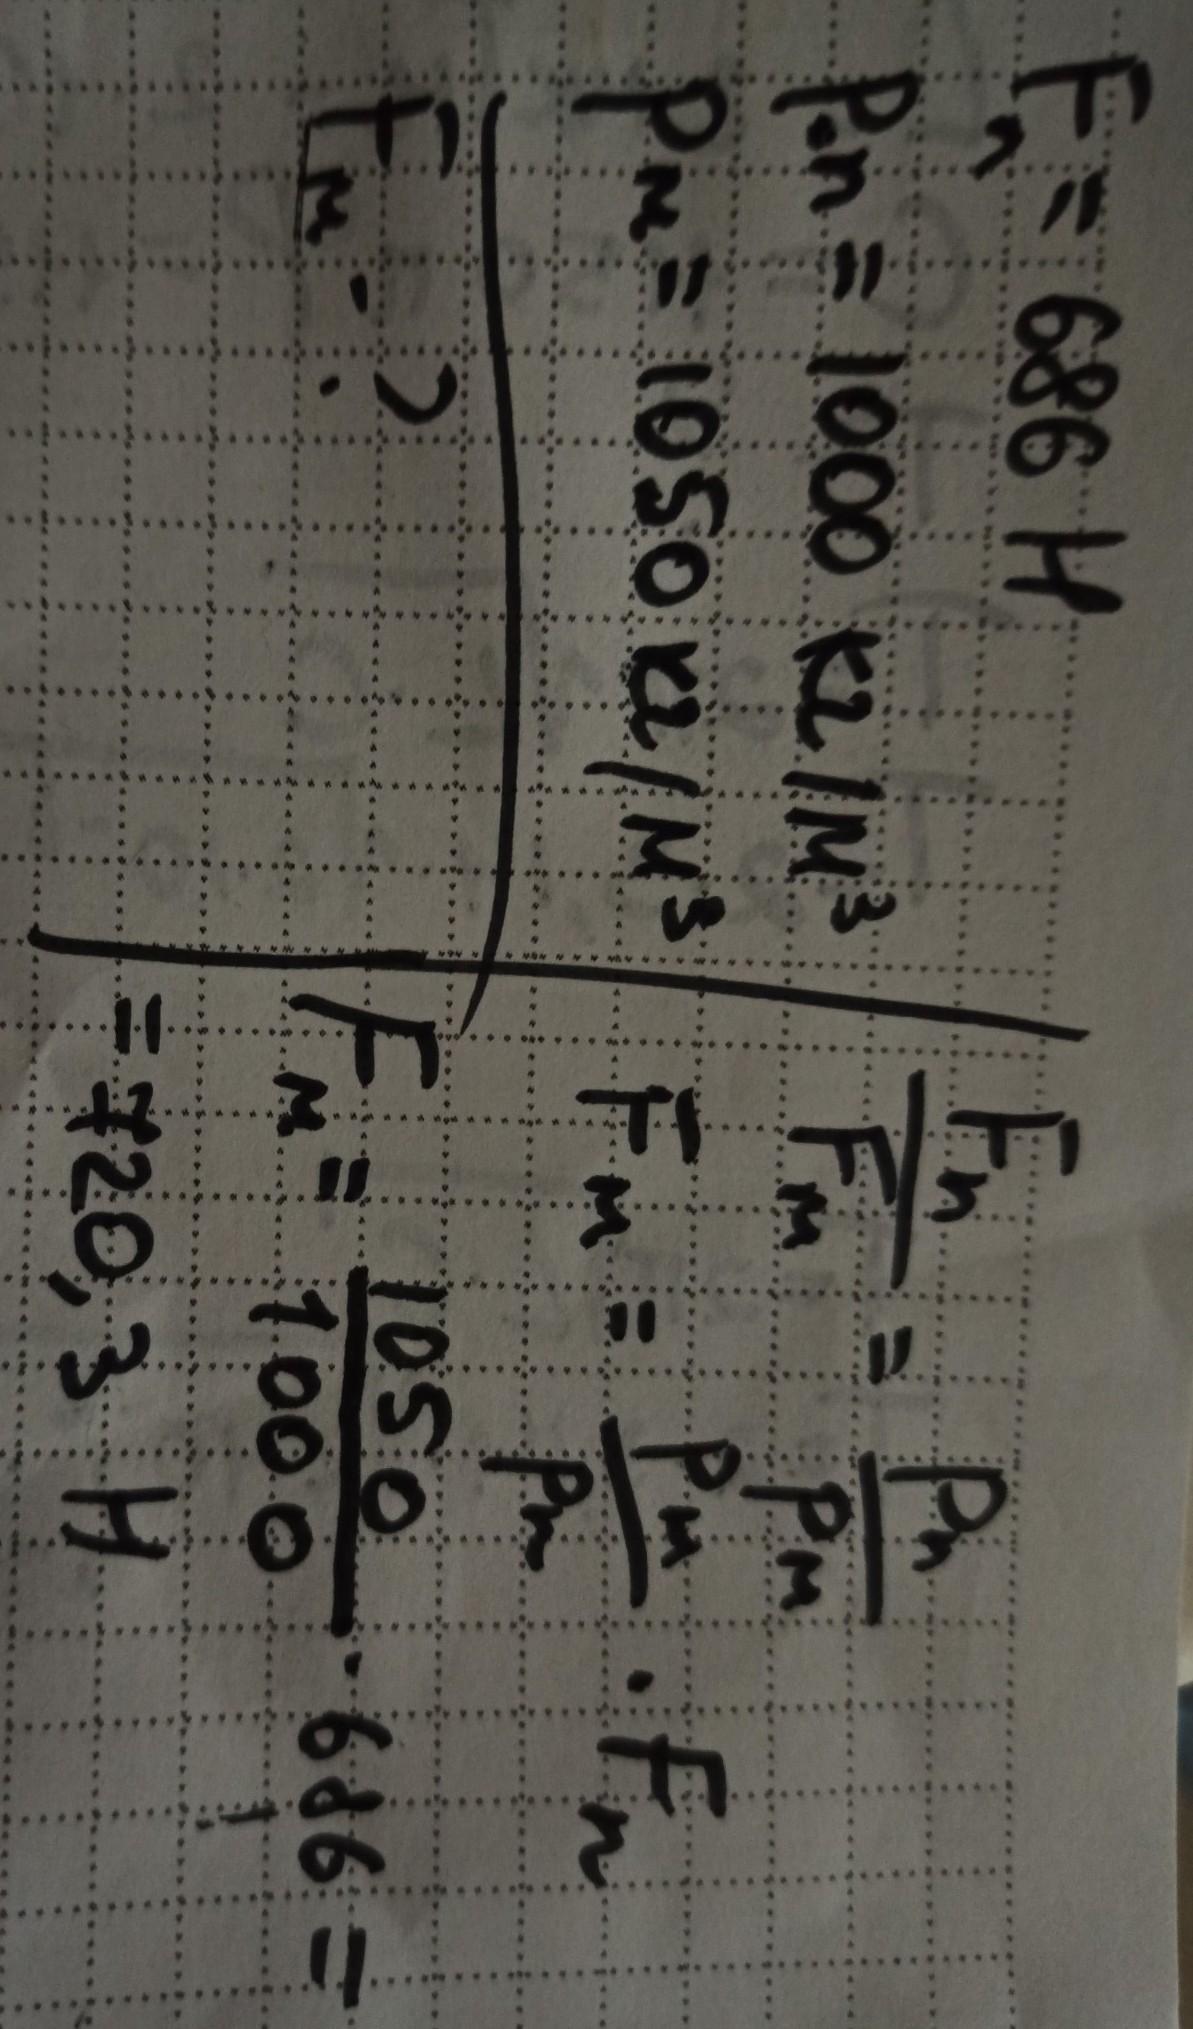 Fп = 686 Н
Pп = 1000 кг/м³
Pм = 1050 кг/м³
Fм - ?
Fп/Fм = Pп/Pм
Fм = Pм/Pп · Fп
Fм = 1050/1000 · 686 =
= 720,3 Н